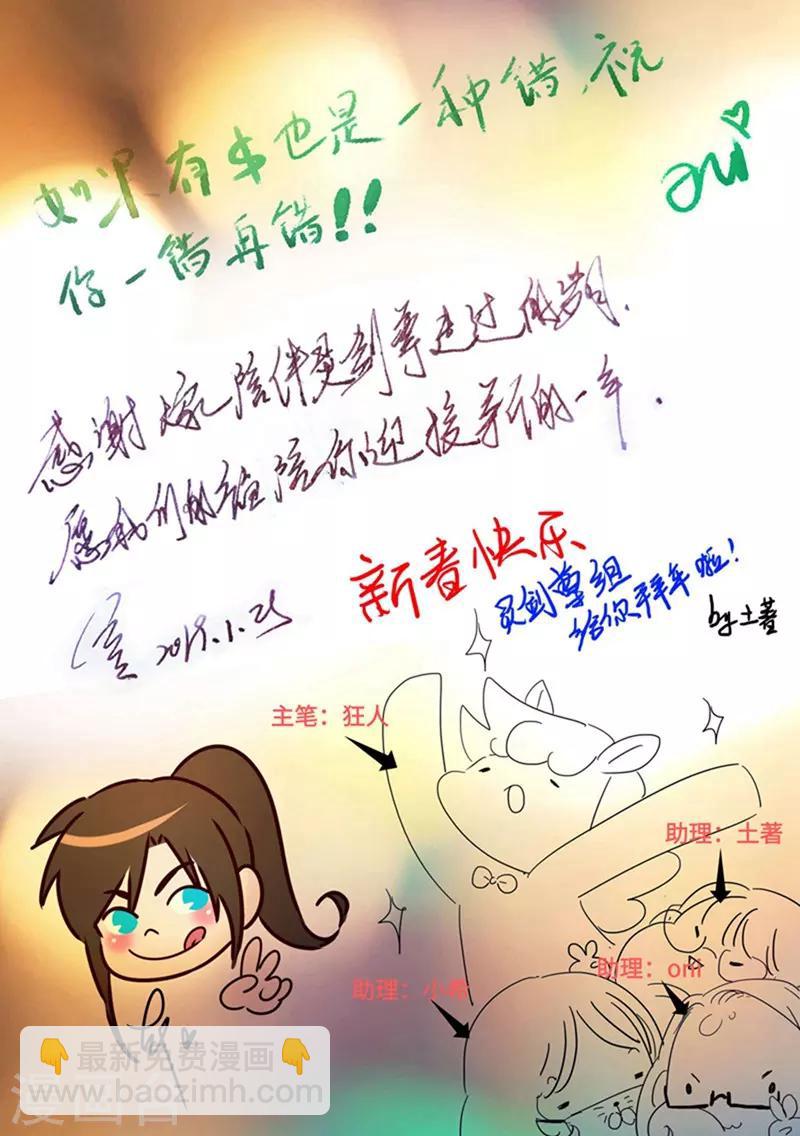 如果有钱也是一种错,祝
你一错再错!!
oni
感谢大家陪伴灵剑尊走过的岁月.
愿我们继续陪你迎接新的一年.
2019.1.25
新春快乐
灵剑尊组
给你拜年啦!
by 土著
主笔：狂人
助理：土著
助理：oni
助理：小希
👇最新免费漫画👇
www.baozimh.com